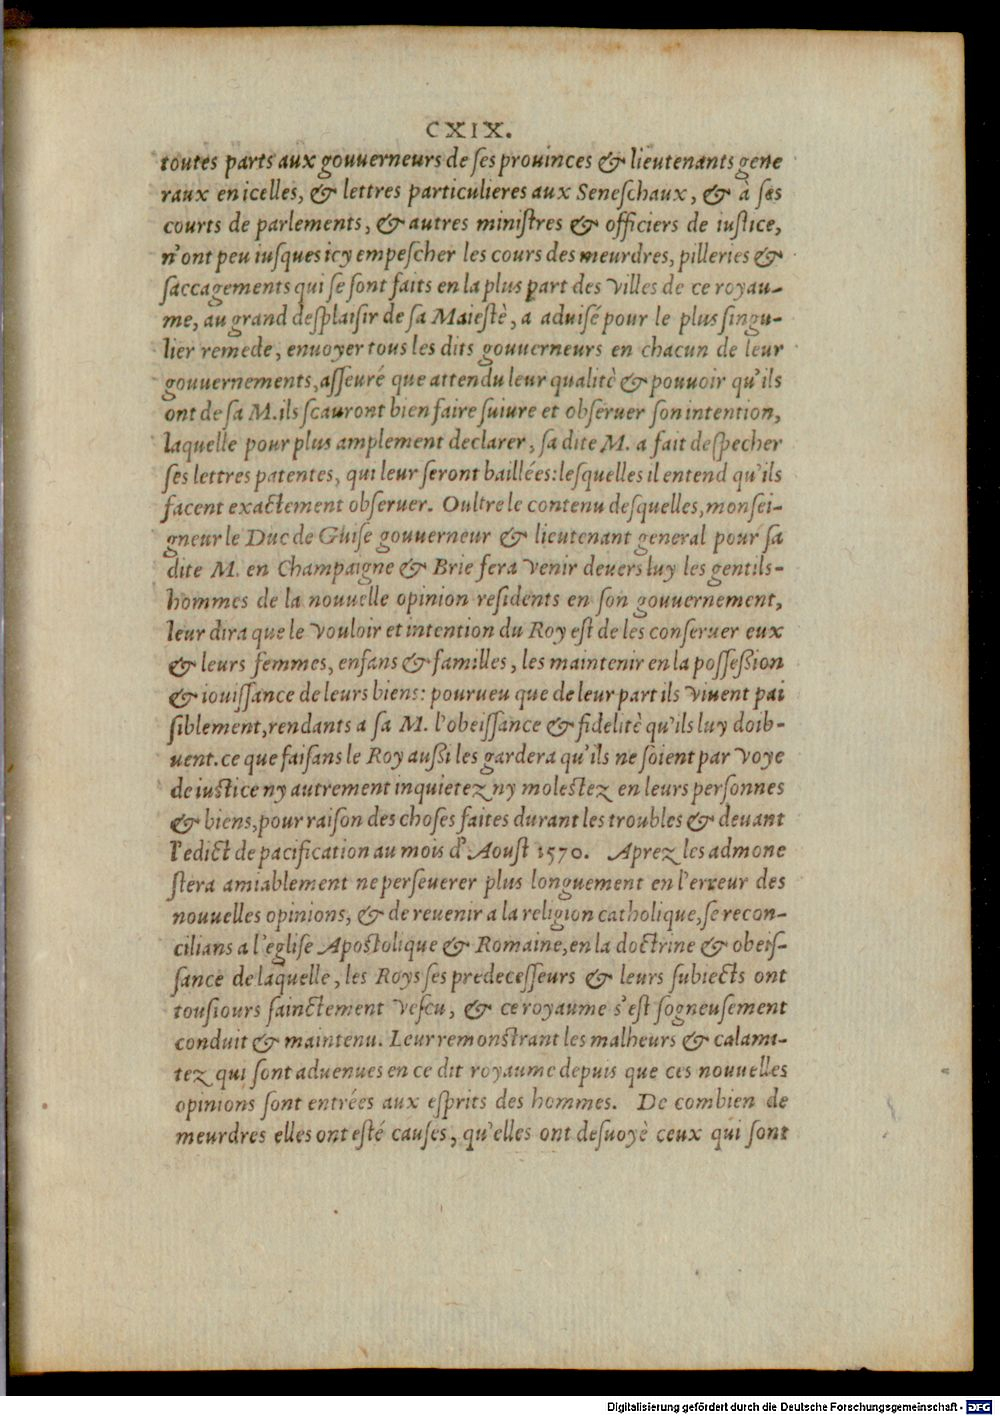 CXIX.
toutes parts aux gouuerneurs de ſes prouinces & lieutenants gene
raux en icelles, & lettres particulieres aux Seneſchaux, & à ſes
courts de parlements, & autres miniſtres & officiers de iuſtice,
n'ont peu iuſques icy empeſcher les cours des meurdres, pilleries &
ſaccagements qui ſe ſont faits en la plus part des Villes de ce royau-
me, au grand deſplaiſir de ſa Maieſtè, a aduiſé pour le plus ſingu-
lier remede, enuoyer tous les dits gouuerneurs en chacun de leur
gouuernements, aſſeuré que attendu leur qualitè & pouuoir qu'ils
ont de ſa M. ils ſcauront bien faire ſuiure et obſeruer ſon intention,
laquelle pour plus amplement declarer, ſa dite M. a fait deſpecher
ſes lettres patentes, qui leur ſeront baillées: leſquelles il entend qu'ils
facent exactement obſeruer. Oultre le contenu deſquelles, monſei-
gneur le Duc de Guiſe gouuerneur & lieutenant general pour ſa
dite M. en Champaigne & Brie fera Venir deuers luy les gentils-
hommes de la nouuelle opinion reſidents en ſon gouuernement,
leur dira que le Vouloir et intention du Roy eſt de les conſeruer eux
& leurs femmes, enfans & familles, les maintenir en la poſſeſsion
& iouiſſance de leurs biens: pourueu que de leur part ils Viuent pai
ſiblement, rendants a ſa M. l'obeiſſance & fidelitè qu'ils luy doib-
uent. ce que faiſans le Roy auſsi les gardera qu'ils ne ſoient par Voye
de iuſtice ny autrement inquietez ny moleſtez en leurs perſonnes
& biens, pour raiſon des choſes faites durant les troubles & deuant
l'edict de pacification au mois d'Aouſt 1570. Aprez les admone
ſtera amiablement ne perſeuerer plus longuement en l'erreur des
nouuelles opinions, & de reuenir a la religion catholique, ſe recon-
cilians a l'egliſe Apoſtolique & Romaine, en la doctrine & obeiſ-
ſance de laquelle, les Roys ſes predeceſſeurs & leurs ſubiects ont
touſiours ſainctement Veſcu, & ce royaume s'eſt ſogneuſement
conduit & maintenu. Leur remonſtrant les malheurs & calami-
tez qui ſont aduenues en ce dit royaume depuis que ces nouuelles
opinions ſont entrées aux eſprits des hommes. De combien de
meurdres elles ont eſté cauſes, qu'elles ont deſuoyè ceux qui ſont
Digitalisierung gefördert durch die Deutsche Forschungsgemeinschaft - DFG